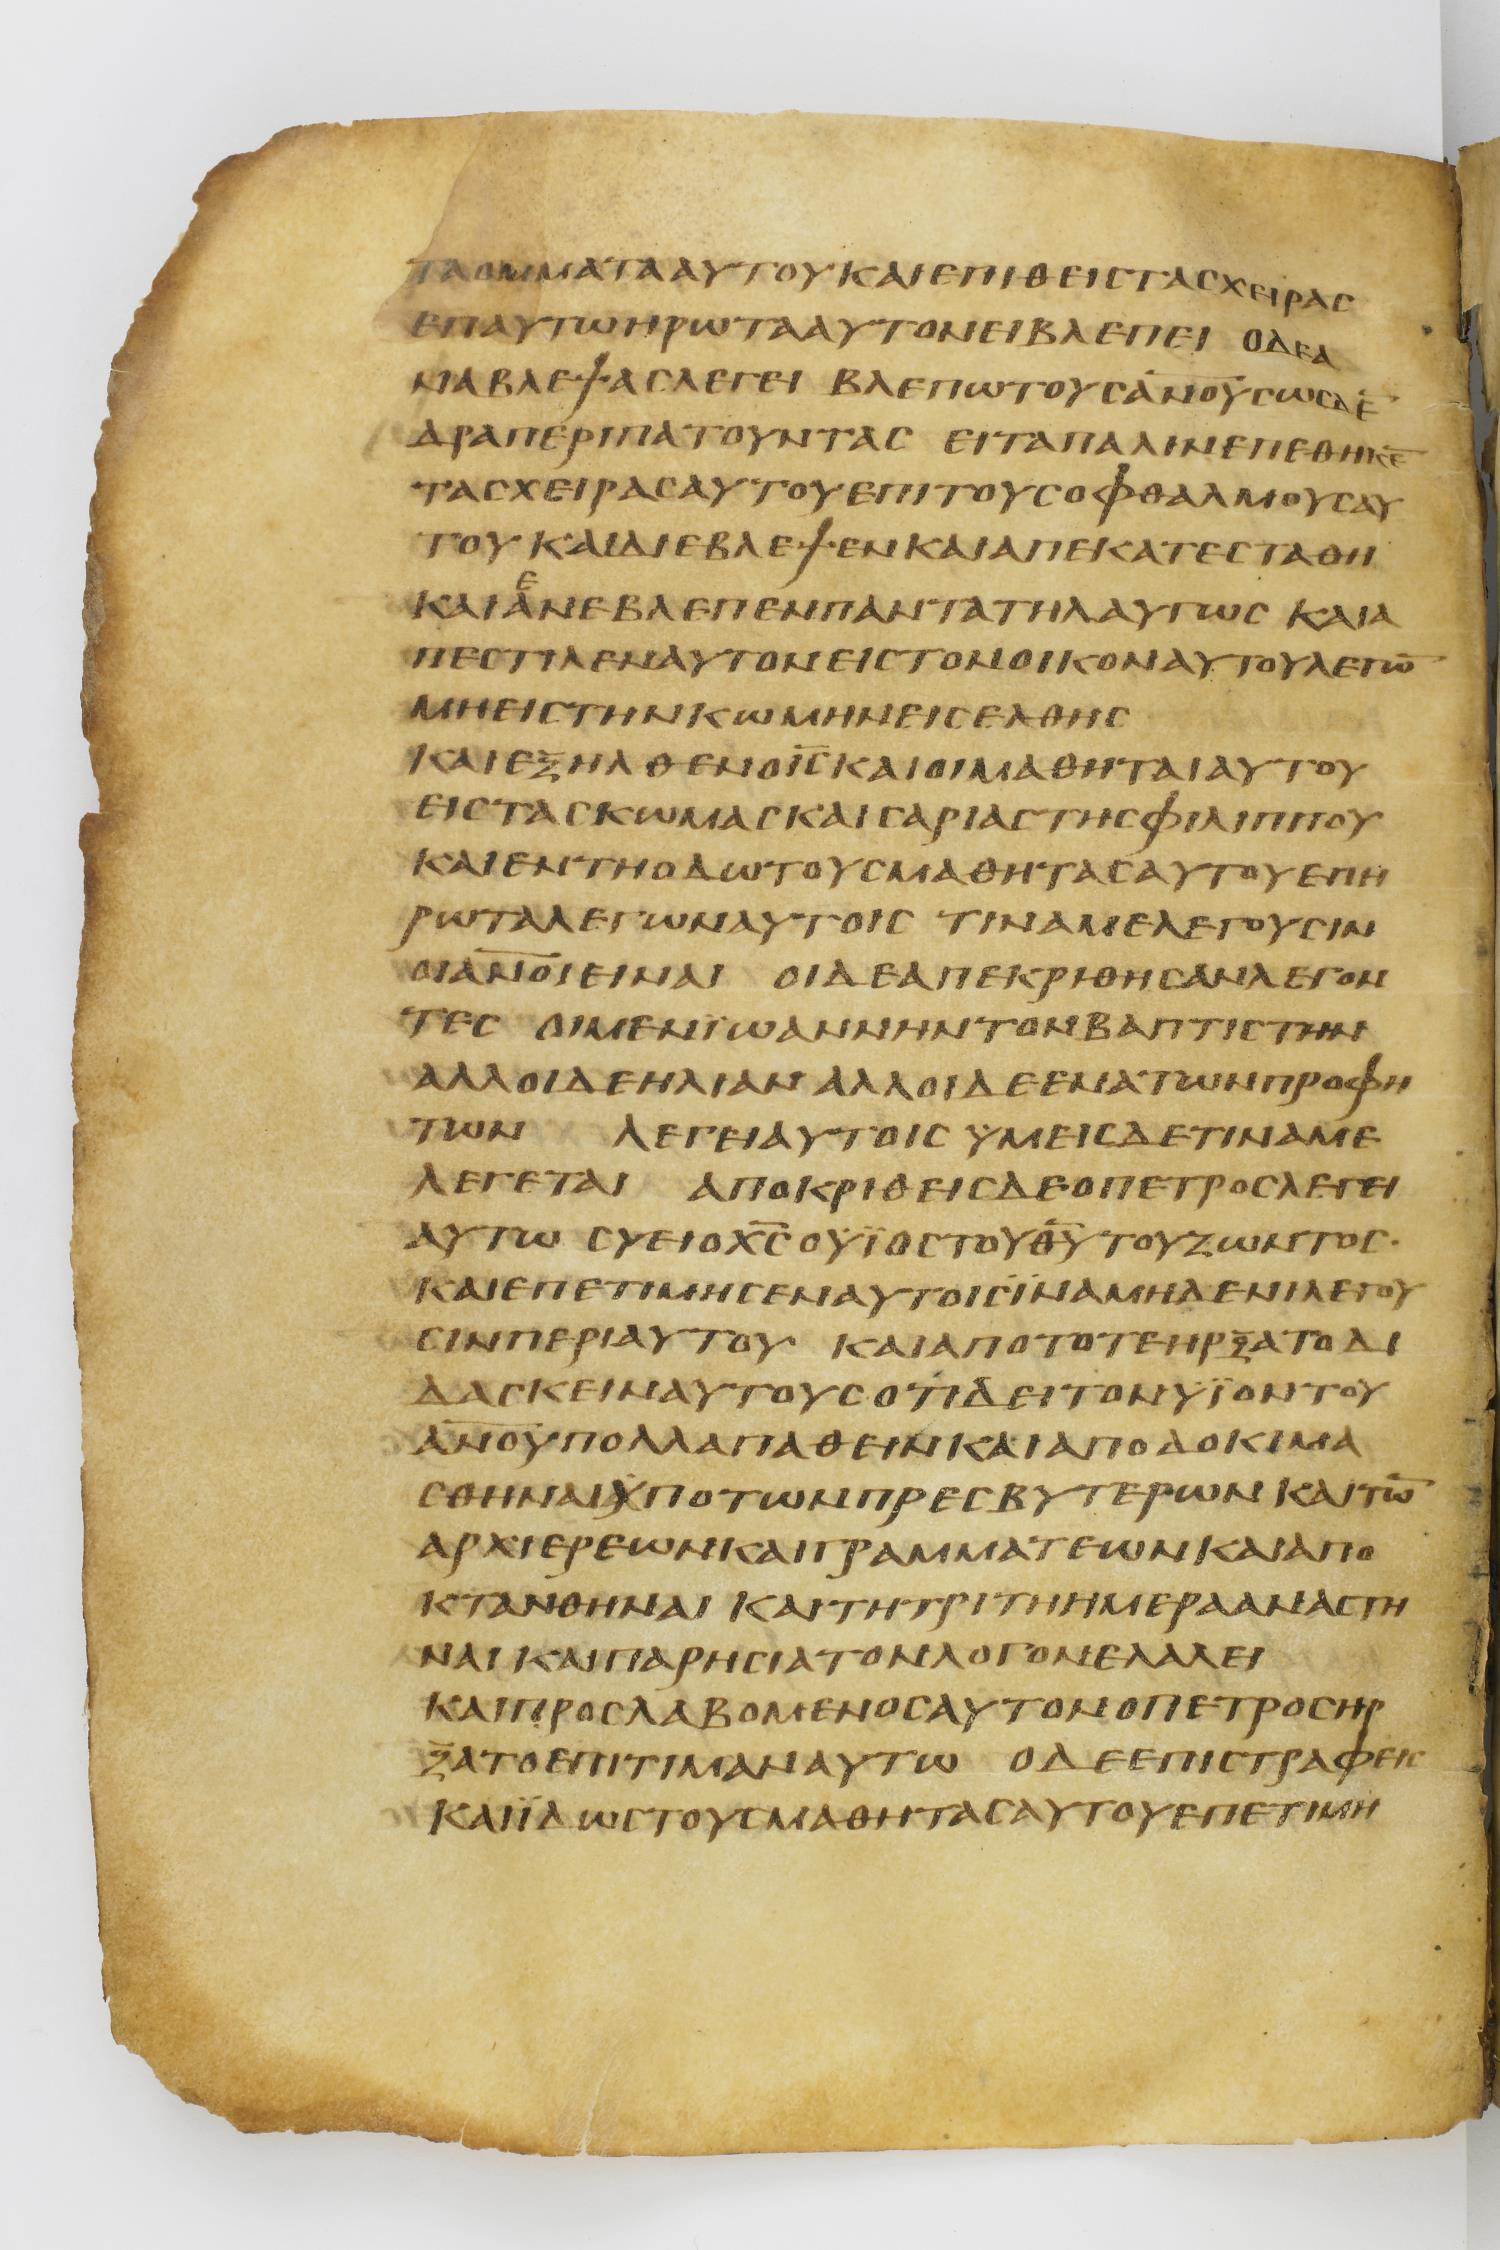 ΤΑΟΜΜΑΤΑΑΥΤΟΥΚΑΙΕΠΙΘΕΙСΤΑСΧΕΙΡΑС
ΕΠΑΥΤΩΗΡΩΤΑΑΥΤΟΝΕΙΒΛΕΠΕΙ ΟΔΕΑ
ΝΑΒΛΕΨΑСΛΕΓΕΙ ΒΛΕΠΩΤΟΥСΑ̅Ν̅Ο̅Υ̅СΩСΔΕ̅
ΔΡΑΠΕΡΙΠΑΤΟΥΝΤΑС ΕΙΤΑΠΑΛΙΝΕΠΕΘΗΚΕ̅
ΤΑСΧΕΙΡΑСΑΥΤΟΥΕΠΙΤΟΥСΟΦΘΑΛΜΟΥСΑΥ
ΤΟΥ ΚΑΙΔΙΕΒΛΕΨΕΝΚΑΙΑΠΕΚΑΤΕСΤΑΘΗ
ΚΑΙΑεΝΕΒΛΕΠΕΝΠΑΝΤΑΤΗΛΑΥΓΩС ΚΑΙΑ
ΠΕСΤΙΛΕΝΑΥΤΟΝΕΙСΤΟΝΟΙΚΟΝΑΥΤΟΥΛΕΓΩ̅
ΜΗΕΙСΤΗΝΚΩΜΗΝΕΙСΕΛΘΗС
ΚΑΙΕΞΗΛΘΕΝΟΙ̅С̅ΚΑΙΟΙΜΑΘΗΤΑΙΑΥΤΟΥ
ΕΙСΤΑСΚΩΜΑСΚΑΙСΑΡΙΑСΤΗСΦΙΛΙΠΠΟΥ
ΚΑΙΕΝΤΗΟΔΩΤΟΥСΜΑΘΗΤΑСΑΥΤΟΥΕΠΗ
ΡΩΤΑΛΕΓΩΝΑΥΤΟΙС ΤΙΝΑΜΕΛΕΓΟΥСΙΝ
ΟΙΑ̅Ν̅Ο̅Ι̅ΕΙΝΑΙ ΟΙΔΕΑΠΕΚΡΙΘΗСΑΝΛΕΓΟΝ
ΤΕС ΟΙΜΕΝΪΩΑΝΝΗΝΤΟΝΒΑΠΤΙСΤΗΝ
ΑΛΛΟΙΔΕΗΛΙΑΝ ΑΛΛΟΙΔΕΕΝΑΤΩΝΠΡΟΦΗ
ΤΩΝ ΛΕΓΕΙΑΥΤΟΙС ΥΜΕΙСΔΕΤΙΝΑΜΕ
ΛΕΓΕΤΑΙ ΑΠΟΚΡΙΘΕΙСΔΕΟΠΕΤΡΟСΛΕΓΕΙ
ΑΥΤΩ СΥΕΙΟΧ̅С̅ΟΥΪΟСΤΟΥΘ̅Υ̅ΤΟΥΖΩΝΤΟС·
ΚΑΙΕΠΕΤΙΜΗСΕΝΑΥΤΟΙСΪΝΑΜΗΔΕΝΙΛΕΓΟΥ
СΙΝΠΕΡΙΑΥΤΟΥ ΚΑΙΑΠΟΤΟΤΕΗΡΞΑΤΟΔΙ
ΔΑСΚΕΙΝΑΥΤΟΥС ΟΤΙΔΕΙΤΟΝΥΪΟΝΤΟΥ
Α̅Ν̅Ο̅Υ̅ΠΟΛΛΑΠΑΘΕΙΝΚΑΙΑΠΟΔΟΚΙΜΑ
СΘΗΝΑΙΫΠΟΤΩΝΠΡΕСΒΥΤΕΡΩΝ ΚΑΙΤΩ̅
ΑΡΧΙΕΡΕΩΝΚΑΙΓΡΑΜΜΑΤΕΩΝΚΑΙΑΠΟ
ΚΤΑΝΘΗΝΑΙ ΚΑΙΤΗΤΡΙΤΗΗΜΕΡΑΑΝΑСΤΗ
ΝΑΙΚΑΙΠΑΡΗСΙΑΤΟΝΛΟΓΟΝΕΛΑΛΕΙ
ΚΑΙΠΡΟСΛΑΒΟΜΕΝΟСΑΥΤΟΝΟΠΕΤΡΟСΗΡ
ΞΑΤΟΕΠΙΤΙΜΑΝΑΥΤΩ ΟΔΕΕΠΙСΤΡΑΦΕΙС
ΚΑΙΪΔΩСΤΟΥСΜΑΘΗΤΑСΑΥΤΟΥΕΠΕΤΙΜΗ